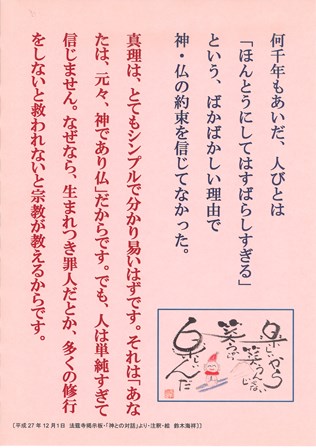 何千年もあいだ、人びとは
「ほんとうにしてはすばらしすぎる」
という、ばかばかしい理由で
神・仏の約束を信じてなかった。
真理は、とてもシンプルで分かり易いはずです。それは「あな
たは、元々、神であり仏」だからです。でも、人は単純すぎて
信じません。なぜなら、生まれつき罪人だとか、多くの修行
をしないと救われないと宗教が教えるからです。
楽しいから
笑うんじゃない
笑うから
楽しんだ
［平成 27 年 12 月 1 日 法蔵寺掲示板・「神との対話」より・注釈・絵 鈴木海祥］